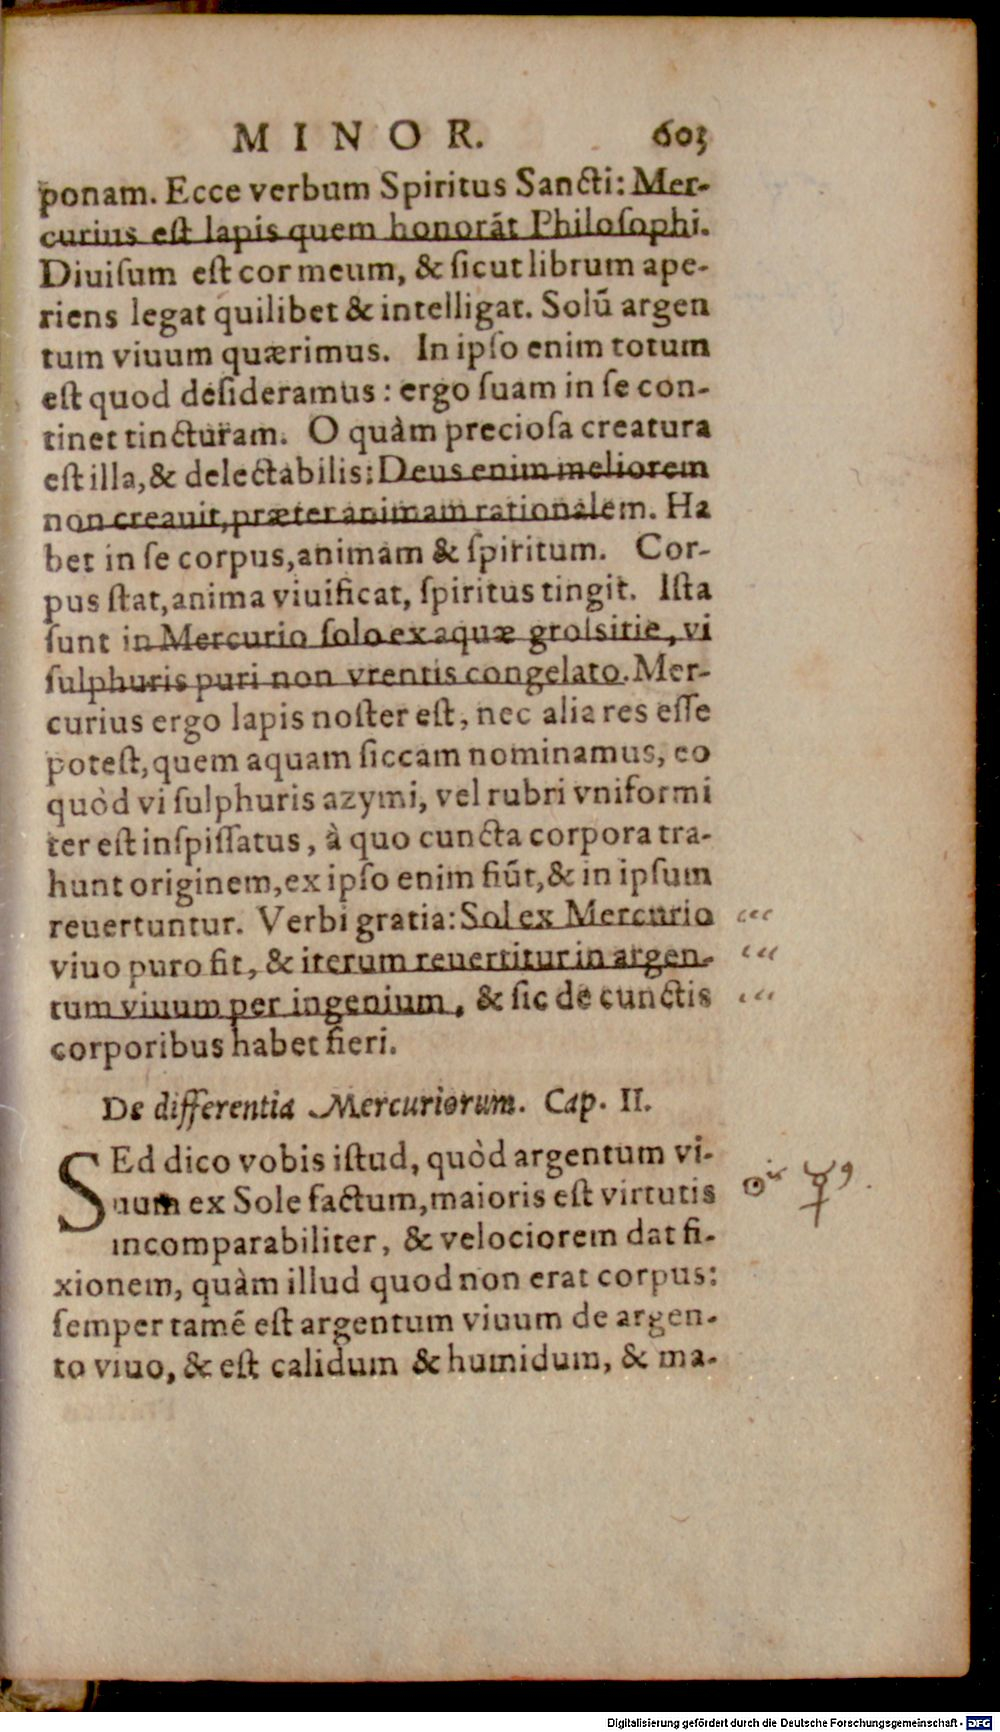 MINOR. 603
ponam. Ecce verbum Spiritus Sancti: Mer-
curius est lapis quem honorāt Philosophi.
Diuisum est cor meum, & sicut librum ape-
riens legat quilibet & intelligat. Solū argen
tum viuum quærimus. In ipso enim totum
est quod desideramus: ergo suam in se con-
tinet tincturam. O quàm preciosa creatura
est illa, & delectabilis: Deus enim meliorem
non creauit, præter animam rationalem. Ha
bet in se corpus, animam & spiritum. Cor-
pus stat, anima viuificat, spiritus tingit. Ista
sunt in Mercurio solo ex aquæ grossitie, vi
sulphuris puri non vrentis congelato. Mer-
curius ergo lapis noster est, nec alia res esse
potest, quem aquam siccam nominamus, eo
quòd vi sulphuris azymi, vel rubri vniformi
ter est inspissatus, à quo cuncta corpora tra-
hunt originem, ex ipso enim fiūt, & in ipsum
reuertuntur. Verbi gratia: Sol ex Mercurio
viuo puro fit, & iterum reuertitur in argen-
tum viuum per ingenium, & sic de cunctis
corporibus habet fieri.
De differentia Mercuriorum. Cap. II.
SEd dico vobis istud, quòd argentum vi-
uum ex Sole factum, maioris est virtutis ☉is ☿9.
incomparabiliter, & velociorem dat fi-
xionem, quàm illud quod non erat corpus:
semper tamē est argentum viuum de argen-
to viuo, & est calidum & humidum, & ma-
Digitalisierung gefördert durch die Deutsche Forschungsgemeinschaft - DFG